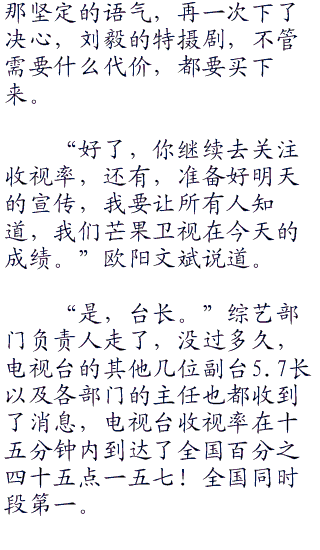 那坚定的语气，再一次下了
决心，刘毅的特摄剧，不管
需要什么代价，都要买下
来。
“好了，你继续去关注
收视率，还有，准备好明天
的宣传，我要让所有人知
道，我们芒果卫视在今天的
成绩。”欧阳文斌说道。
“是，台长。”综艺部
门负责人走了，没过多久，
电视台的其他几位副台5.7长
以及各部门的主任也都收到
了消息，电视台收视率在十
五分钟内到达了全国百分之
四十五点一五七！全国同时
段第一。